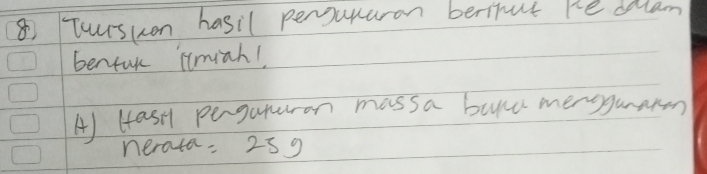 8) Tuliskan hasil pengukuran berikut ke dalam
bentuk ilmiah!
A) Hasil pengukuran massa buku menggunakan
neraca = 25 g